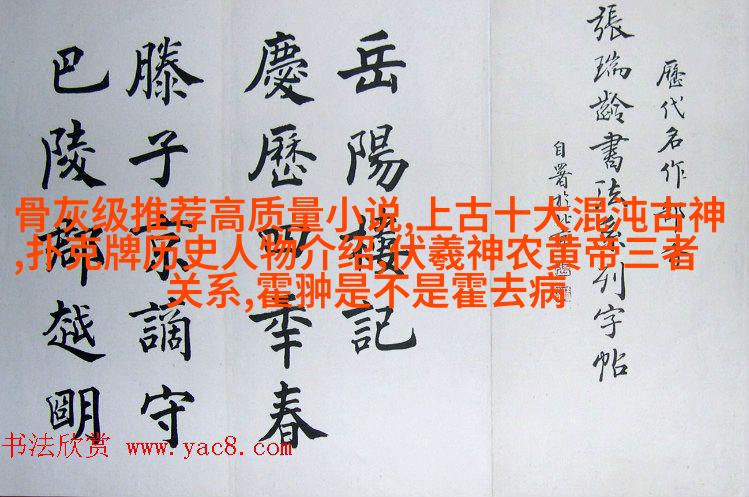 歷代名作
張瑞齡書法系列字帖
自署於北
岳陽樓記
慶歷四年春
滕子京謫守
巴陵郡越明
骨灰级推荐高质量小说,上古十大混沌古神
,扑克牌历史人物介绍,伏羲神农黄帝三者
关系,霍翀是不是霍去病
书法欣赏 www.yac8.com